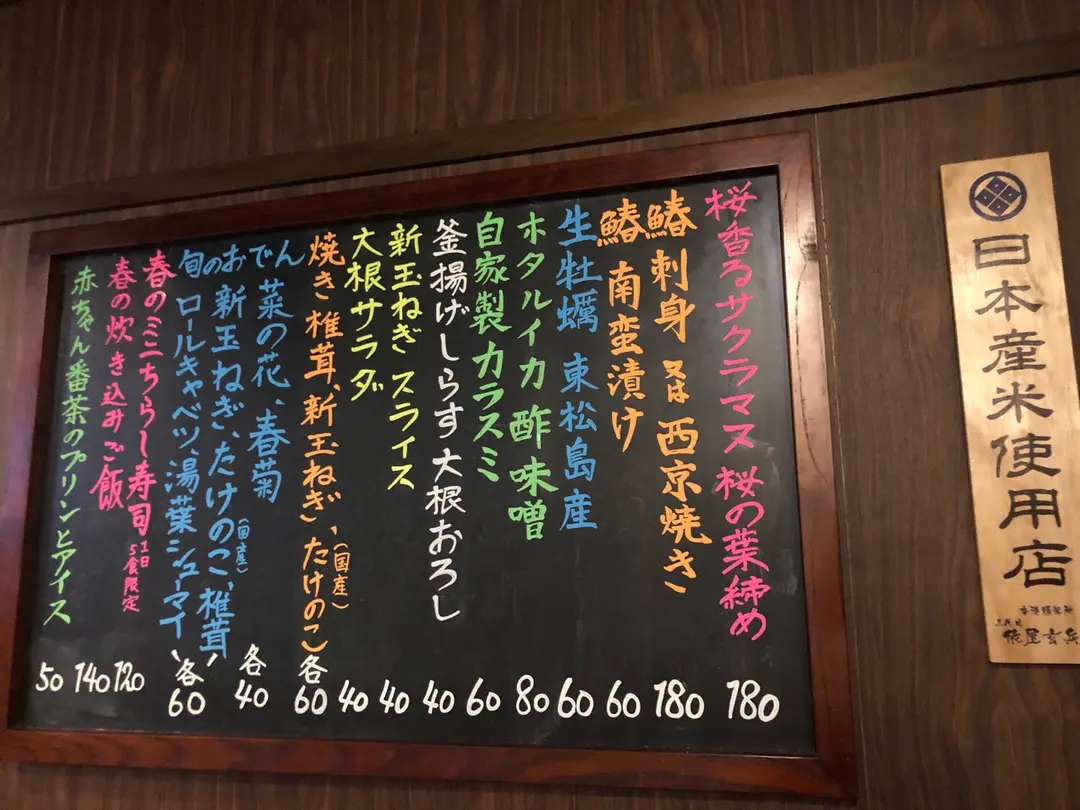 桜香るサクラマス 桜の葉締め 180
鰆 刺身 又は 西京焼き 180
鰆 南蛮漬け 60
生牡蠣 東松島産 60
ホタルイカ 酢味噌 80
自家製カラスミ 60
釜揚げしらす大根おろし 40
新玉ねぎ スライス 40
大根サラダ 40
焼き椎茸、新玉ねぎ、たけのこ(国産) 各60
旬のおでん
菜の花、春菊 各40
新玉ねぎ、たけのこ(国産)、椎茸、
ロールキャベツ、湯葉シューマイ、各60
春のミニちらし寿司 1日5食限定 120
春の炊き込みご飯 140
赤ちゃん番茶のプリンとアイス 50
日本産米使用店
三代目
俵屋玄兵